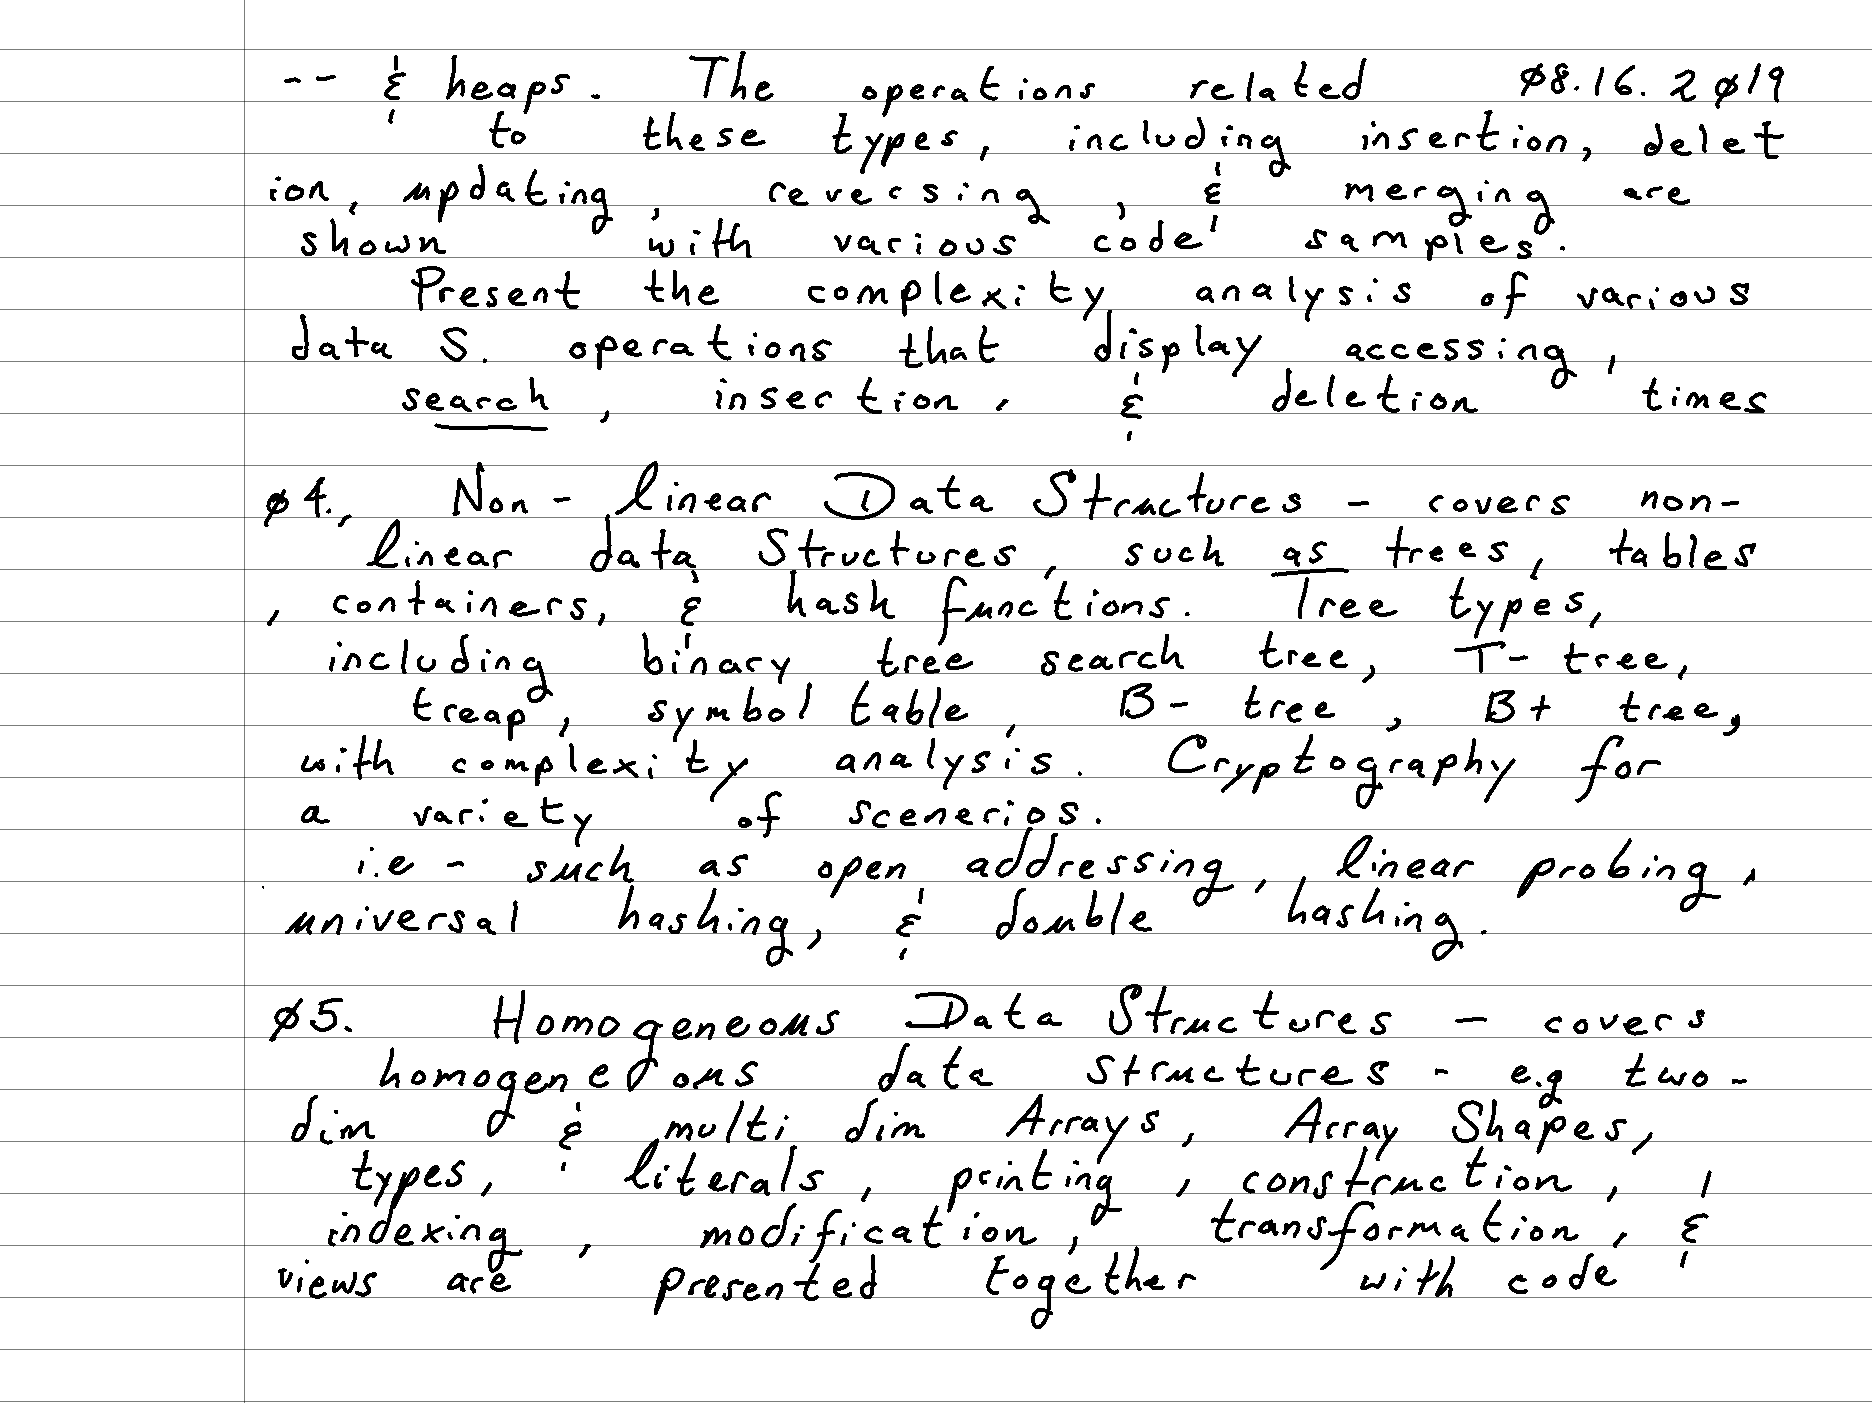 -- & heaps. The operations related ø8.16.2ø19
to these types, including insertion, delet
ion, updating, reversing, & merging are
shown with various code samples.
Present the complexity analysis of various
data S. operations that display accessing,
search, insertion, & deletion times
ø4., Non-linear Data Structures - covers non-
linear data Structures, such as trees, tables
, containers, & hash functions. Tree types,
including binary tree search tree, T-tree,
treap, symbol table, B-tree, B+ tree,
with complexity analysis. Cryptography for
a variety of scenerios.
i.e - such as open addressing, linear probing,
universal hashing, & double hashing.
ø5. Homogeneous Data Structures - covers
homogeneous data structures - e.g two-
dim & multi dim Arrays, Array Shapes,
types, literals, printing, construction,
indexing, modification, transformation, &
views are presented together with code